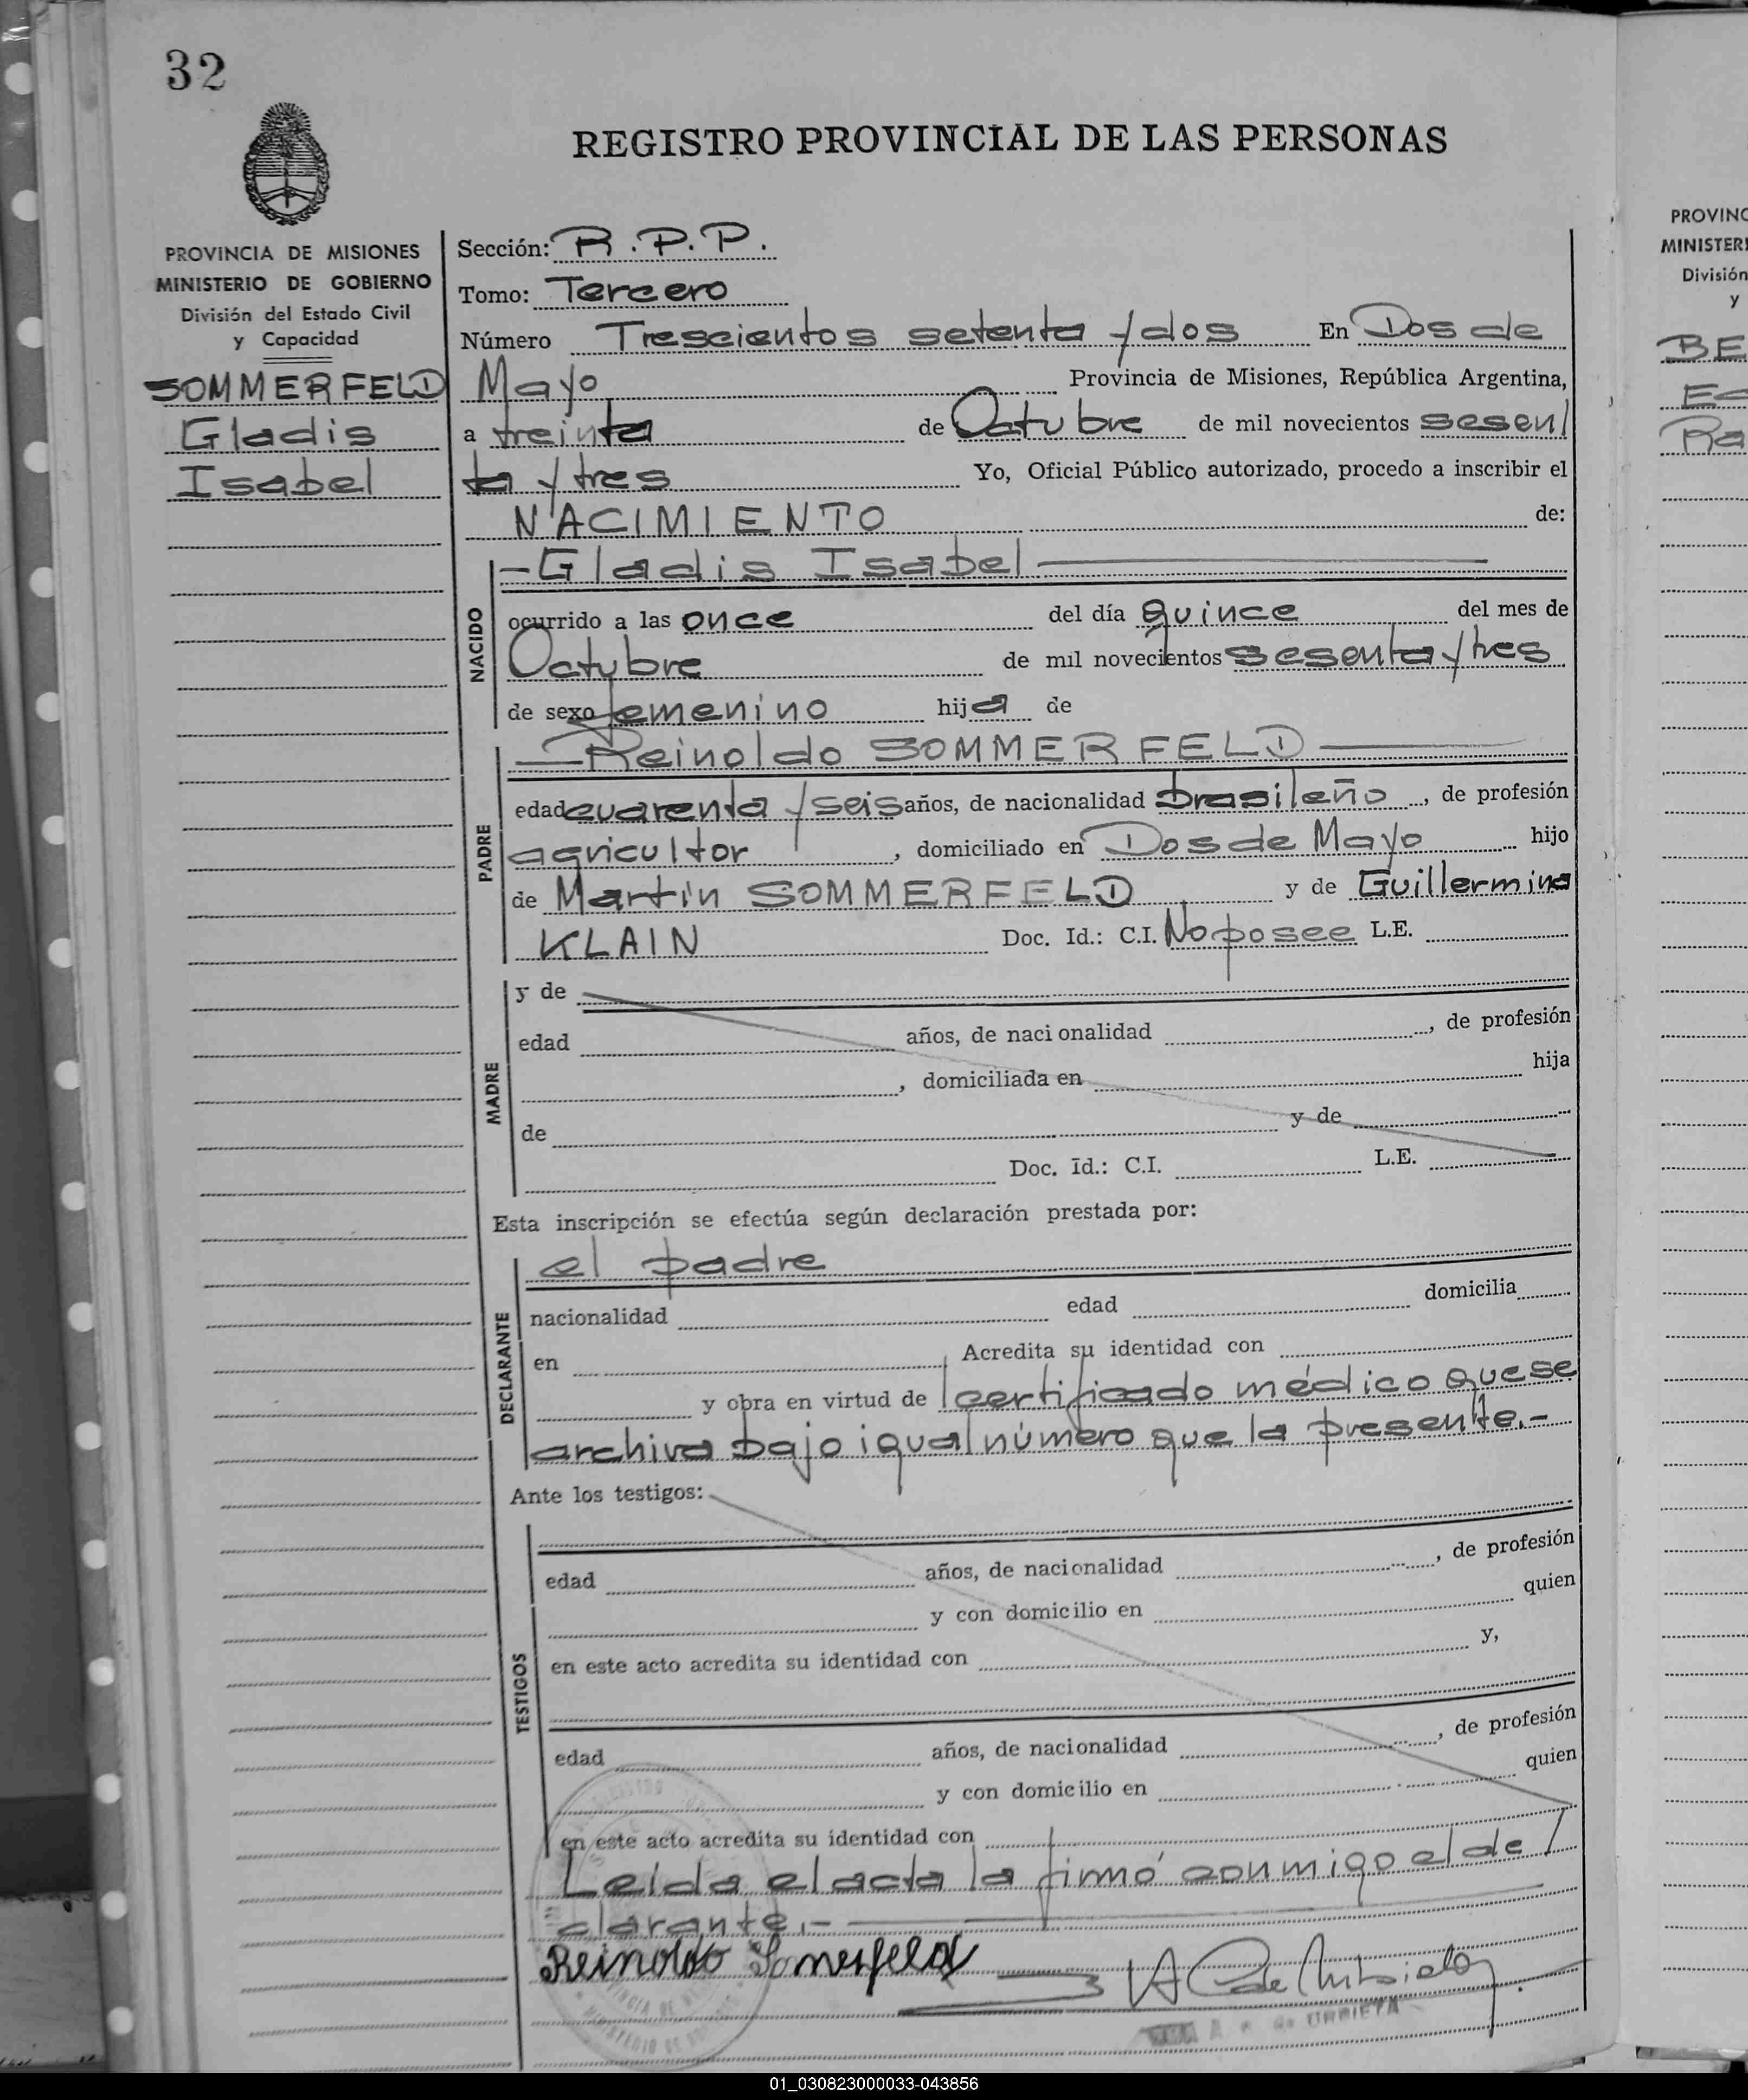 32
REGISTRO PROVINCIAL DE LAS PERSONAS
PROVINCIA DE MISIONES
MINISTERIO DE GOBIERNO
División del Estado Civil
y Capacidad
SOMMERFELD
Gladis
Isabel
Sección: R.P.P.
Tomo: Tercero
Número Trescientos setenta y dos En Dos de
Mayo Provincia de Misiones, República Argentina,
a treinta de Octubre de mil novecientos sesen/
ta y tres Yo, Oficial Público autorizado, procedo a inscribir el
NACIMIENTO de:
NACIDO
- Gladis Isabel
ocurrido a las once del día quince del mes de
Octubre de mil novecientos sesenta y tres
de sexo femenino hija de
PADRE
Reinoldo SOMMERFELD
edad cuarenta y seis años, de nacionalidad brasileño, de profesión
agricultor, domiciliado en Dos de Mayo hijo
de Martín SOMMERFELD y de Guillermina
KLAIN Doc. Id.: C.I. No posee L.E.
MADRE
y de
edad años, de nacionalidad , de profesión
, domiciliada en hija
de y de
Doc. Id.: C.I. L.E.
Esta inscripción se efectúa según declaración prestada por:
DECLARANTE
el padre
nacionalidad edad domicilia
en Acredita su identidad con
y obra en virtud de certificado médico que se
archiva bajo igual número que la presente.-
Ante los testigos:
TESTIGOS
edad años, de nacionalidad , de profesión
y con domicilio en quien
en este acto acredita su identidad con y,
edad años, de nacionalidad , de profesión
y con domicilio en quien
en este acto acredita su identidad con
Leída el acta la firmó conmigo el de/
clarante.-
Reinoldo Somerfeld
de URRIETA
PROVINC
MINISTERI
División
y
BE
Ra
01_030823000033-043856